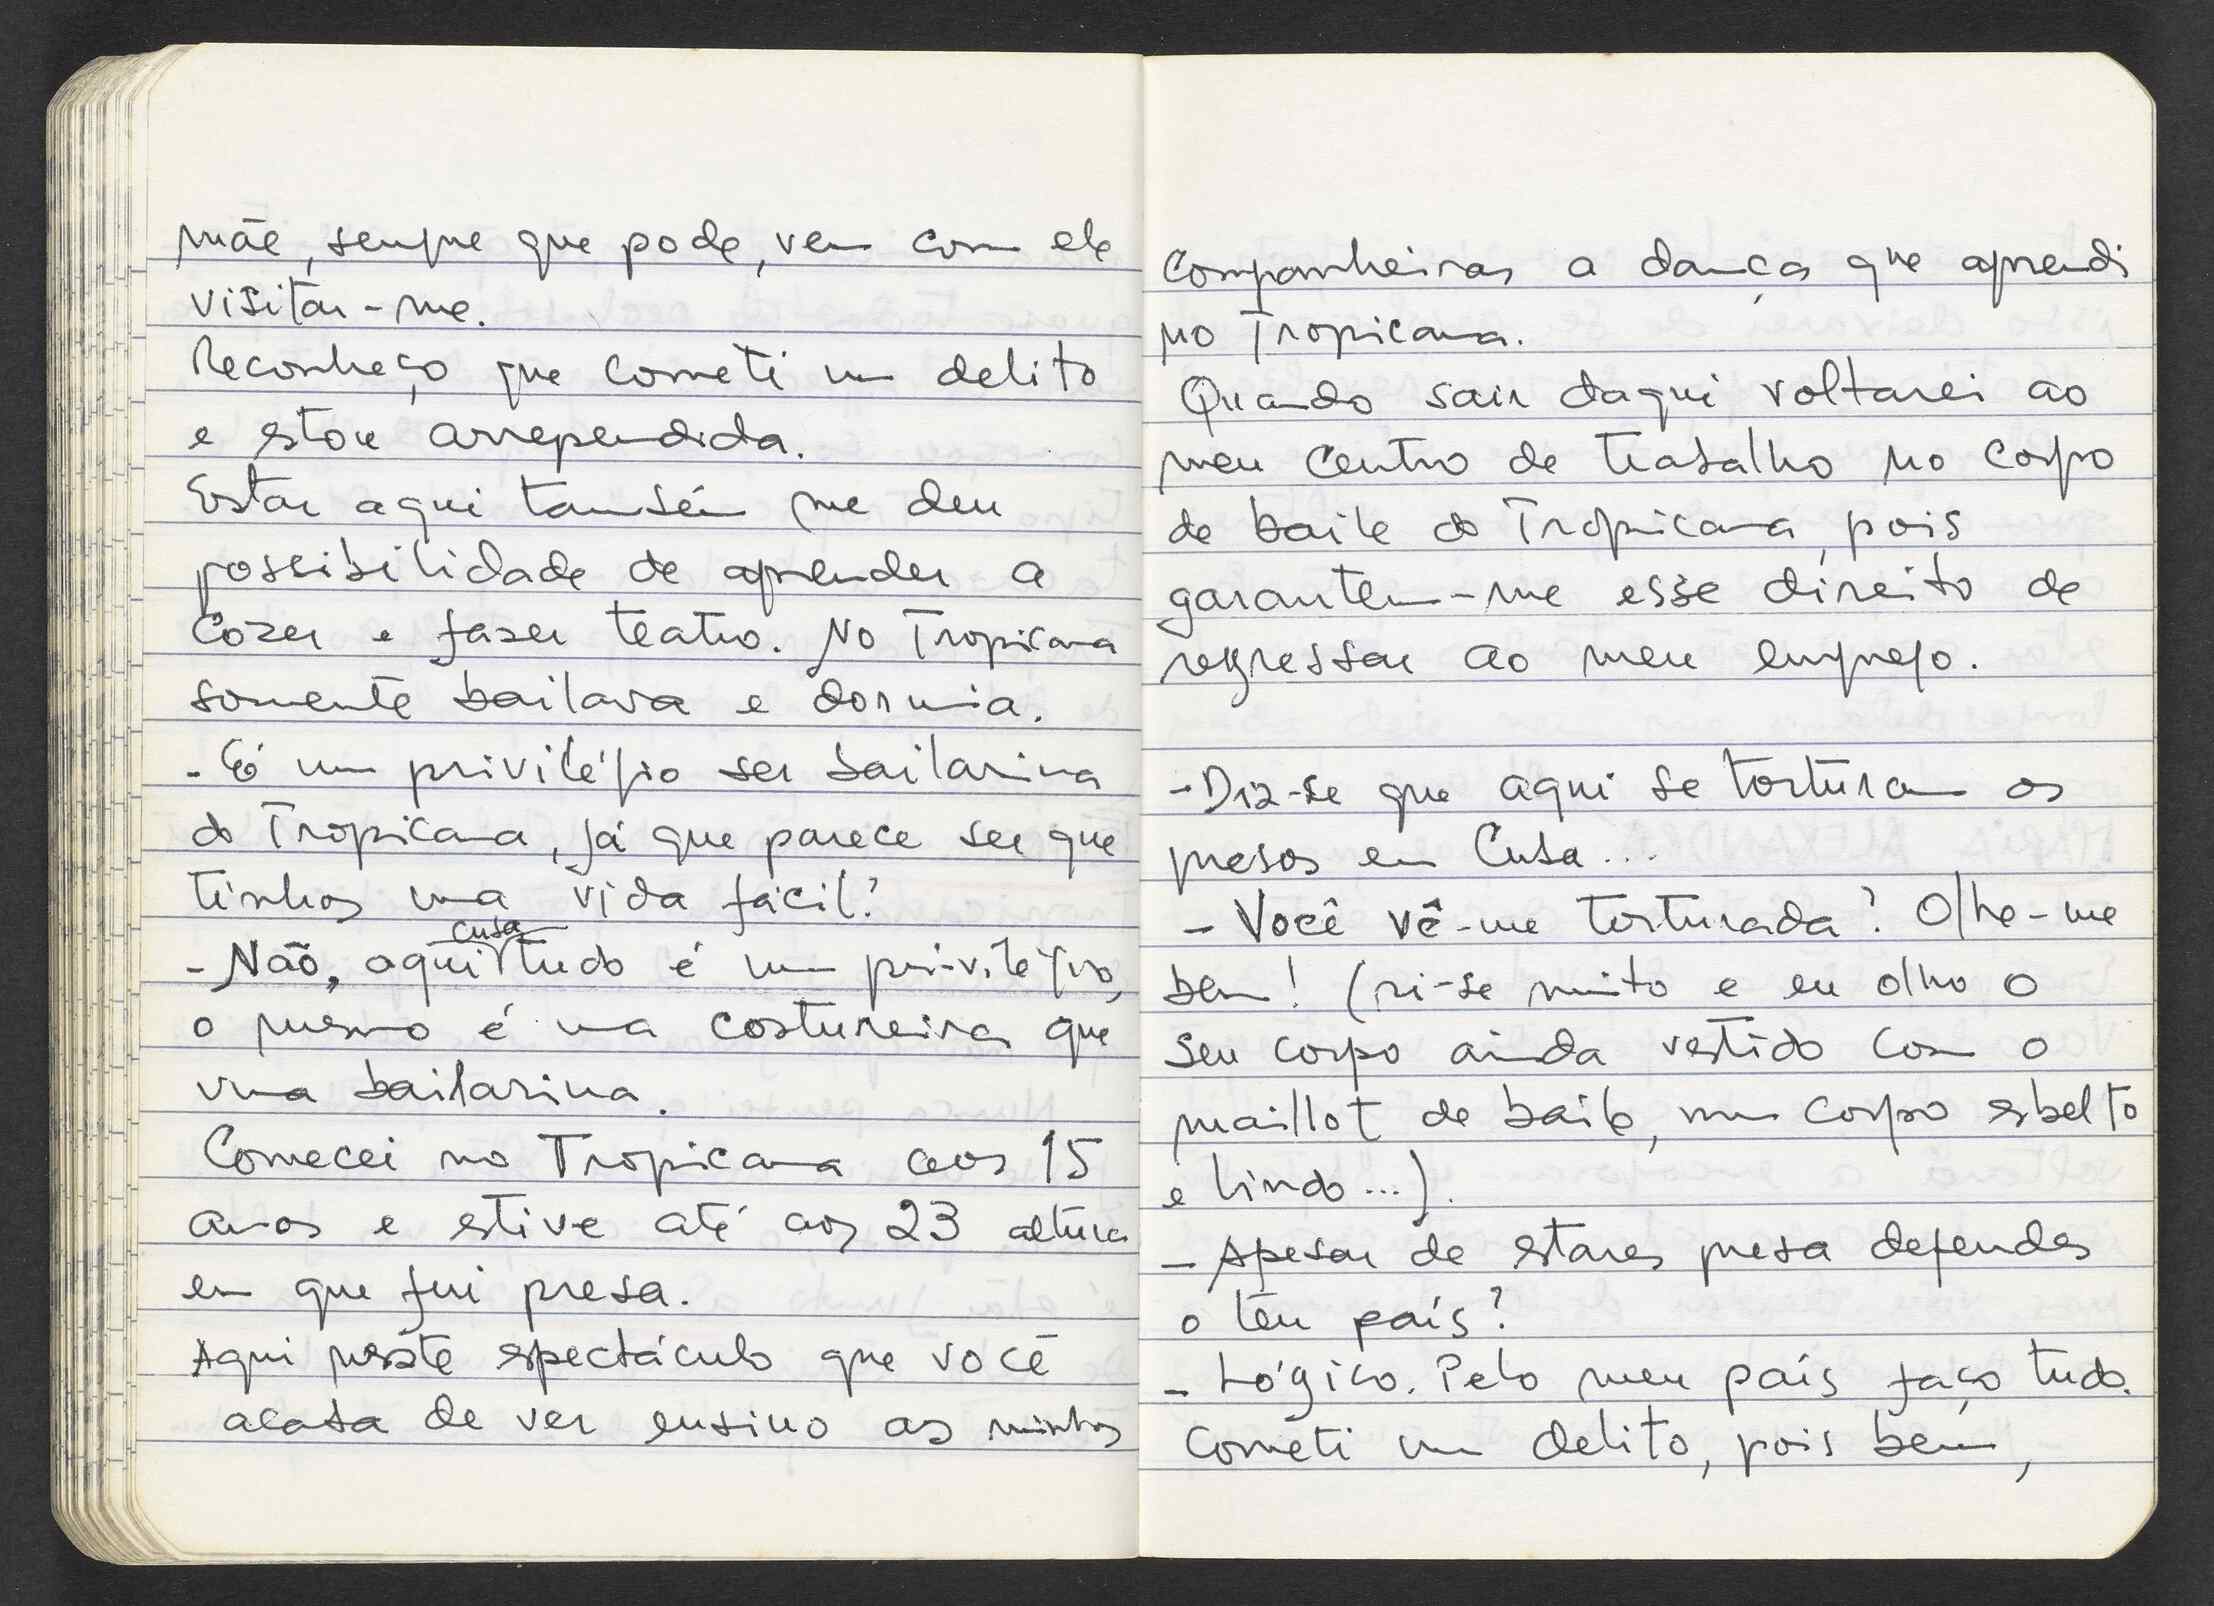 mãe, sempre que pode, vem com ele
visitar-me.
Reconheço que cometi um delito
e estou arrependida.
Estar aqui também me deu
possibilidade de aprender a
cozer e fazer teatro. No Tropicana
somente bailava e dormia.
- É um privilégio ser bailarina
do Tropicana, já que parece ser que
tinhas uma vida fácil?
cuba
- Não, aqui tudo é um privilégio,
o mesmo é uma costureira que
uma bailarina.
Comecei no Tropicana aos 15
anos e estive até aos 23 altura
em que fui presa.
Aqui neste espectáculo que você
acaba de ver ensino as minhas
companheiras a dança que aprendi
no Tropicana.
Quando sair daqui voltarei ao
meu centro de trabalho no corpo
de baile do Tropicana, pois
garantem-me esse direito de
regressar ao meu emprego.
- Diz-se que aqui se torturam os
presos em Cuba...
- Você vê-me torturada? Olhe-me
bem! (ri-se muito e eu olho o
seu corpo ainda vestido com o
maillot de baile, um corpo esbelto
e lindo...).
- Apesar de estares presa defendes
o teu país?
- Lógico. Pelo meu país faço tudo.
Cometi um delito, pois bem,